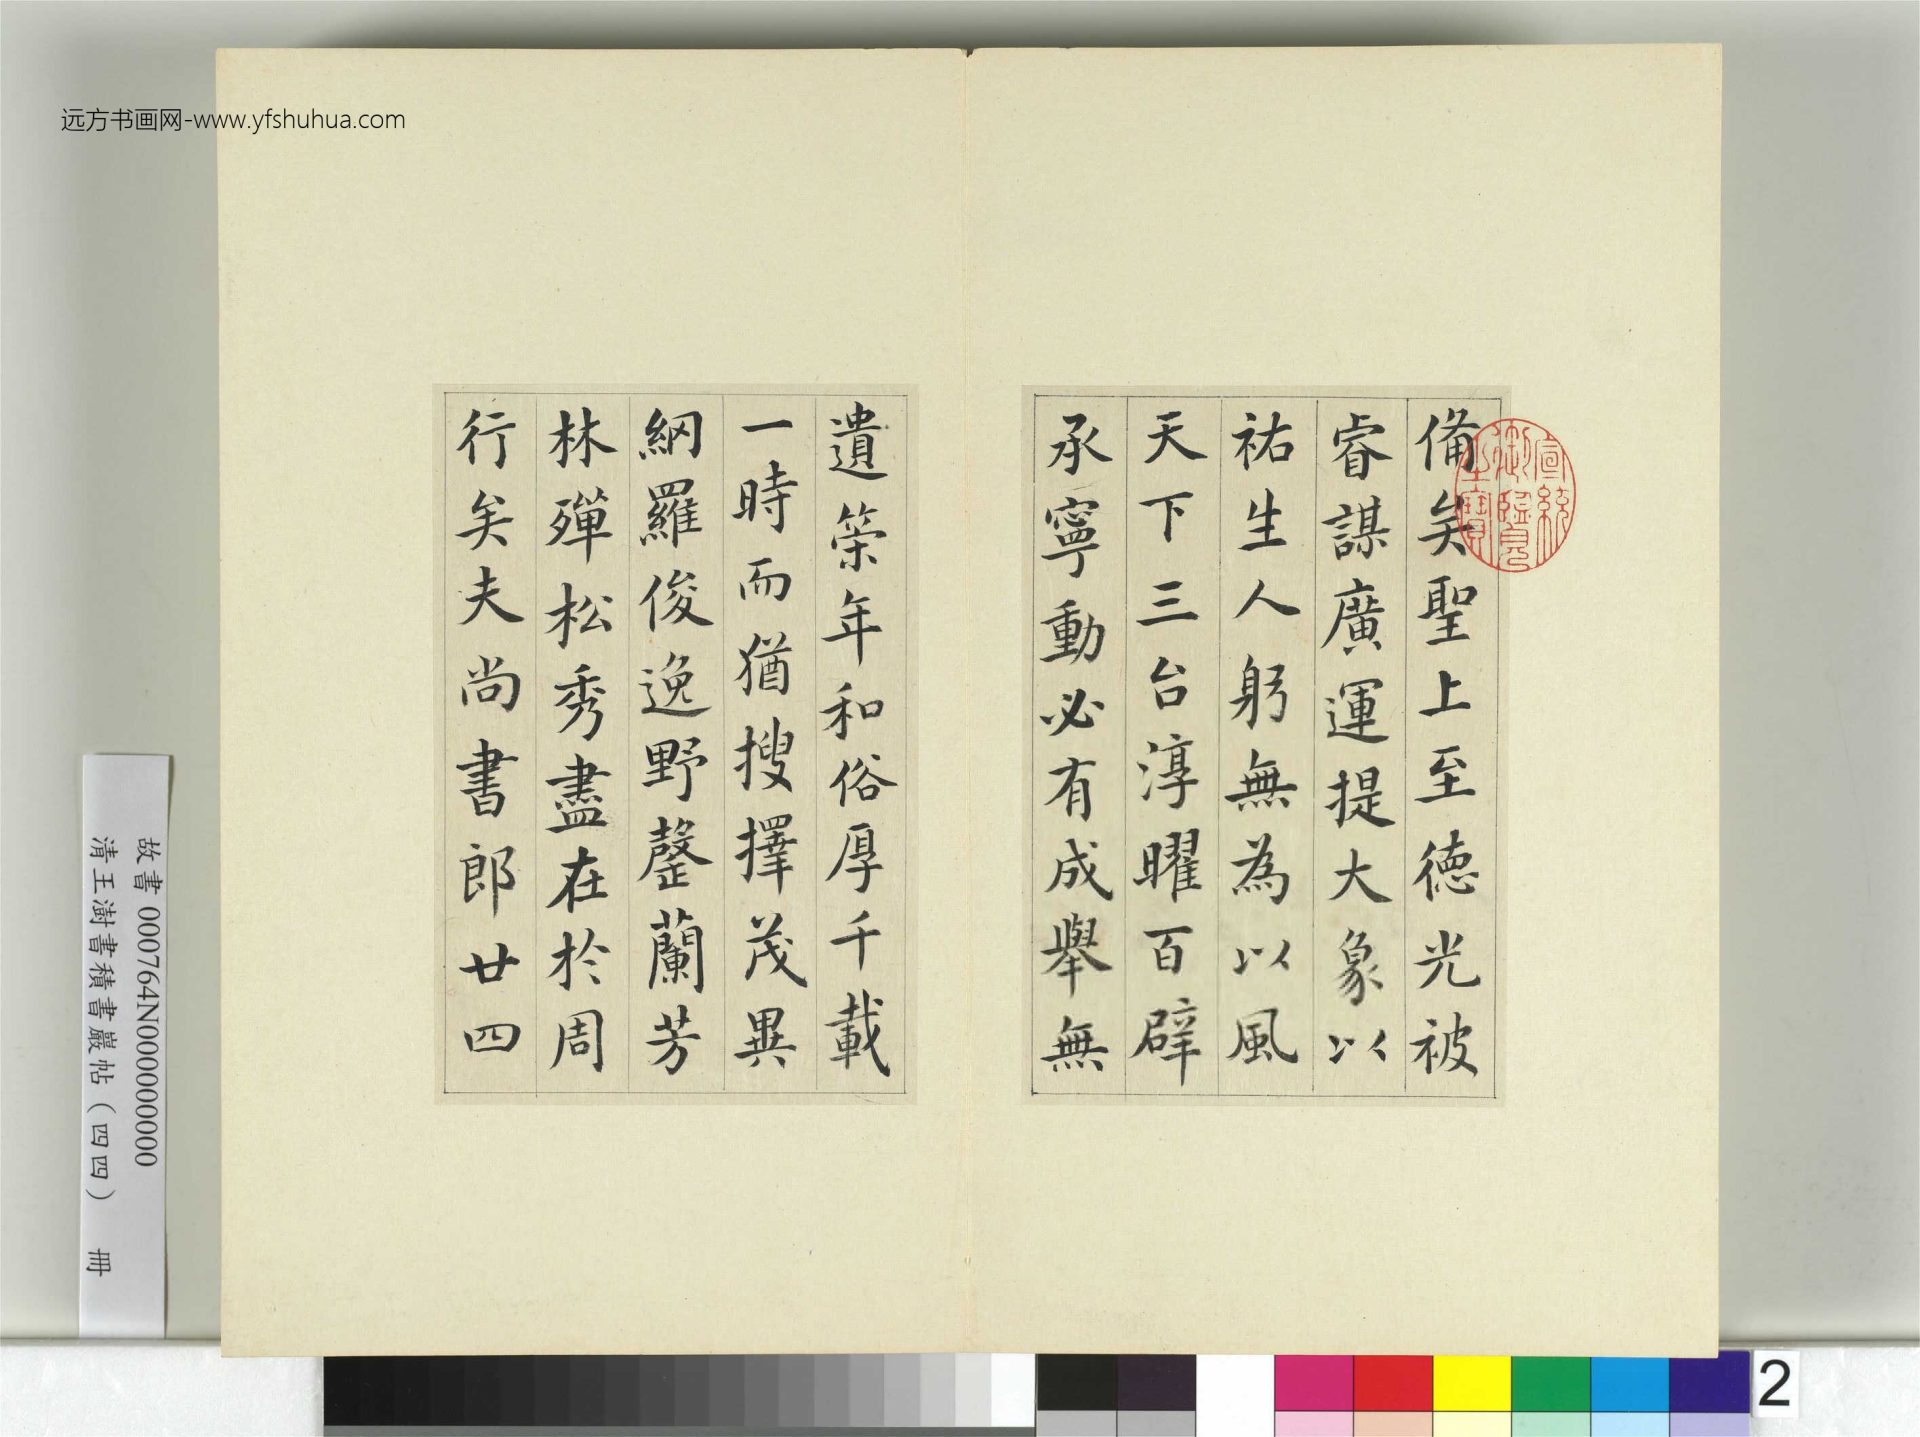 远方书画网-www.yfshuhua.com
備矣聖上至德光被
睿謀廣運提大象以
祐生人躬無為以風
天下三台淳曜百辟
承寧動必有成舉無
遺策年和俗厚千載
一時而猶搜擇茂異
網羅俊逸野罄蘭芳
林殫松秀盡在於周
行矣夫尚書郎廿四
宣統御覽之寶
故書 000764N000000000
清王澍書積書巖帖（四四） 冊
2